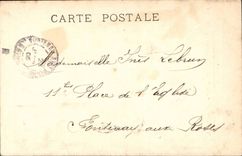 CARTE POSTALE
Mademoiselle Inès Lebrun
11 Place de l'Eglise
Fontenay aux Roses